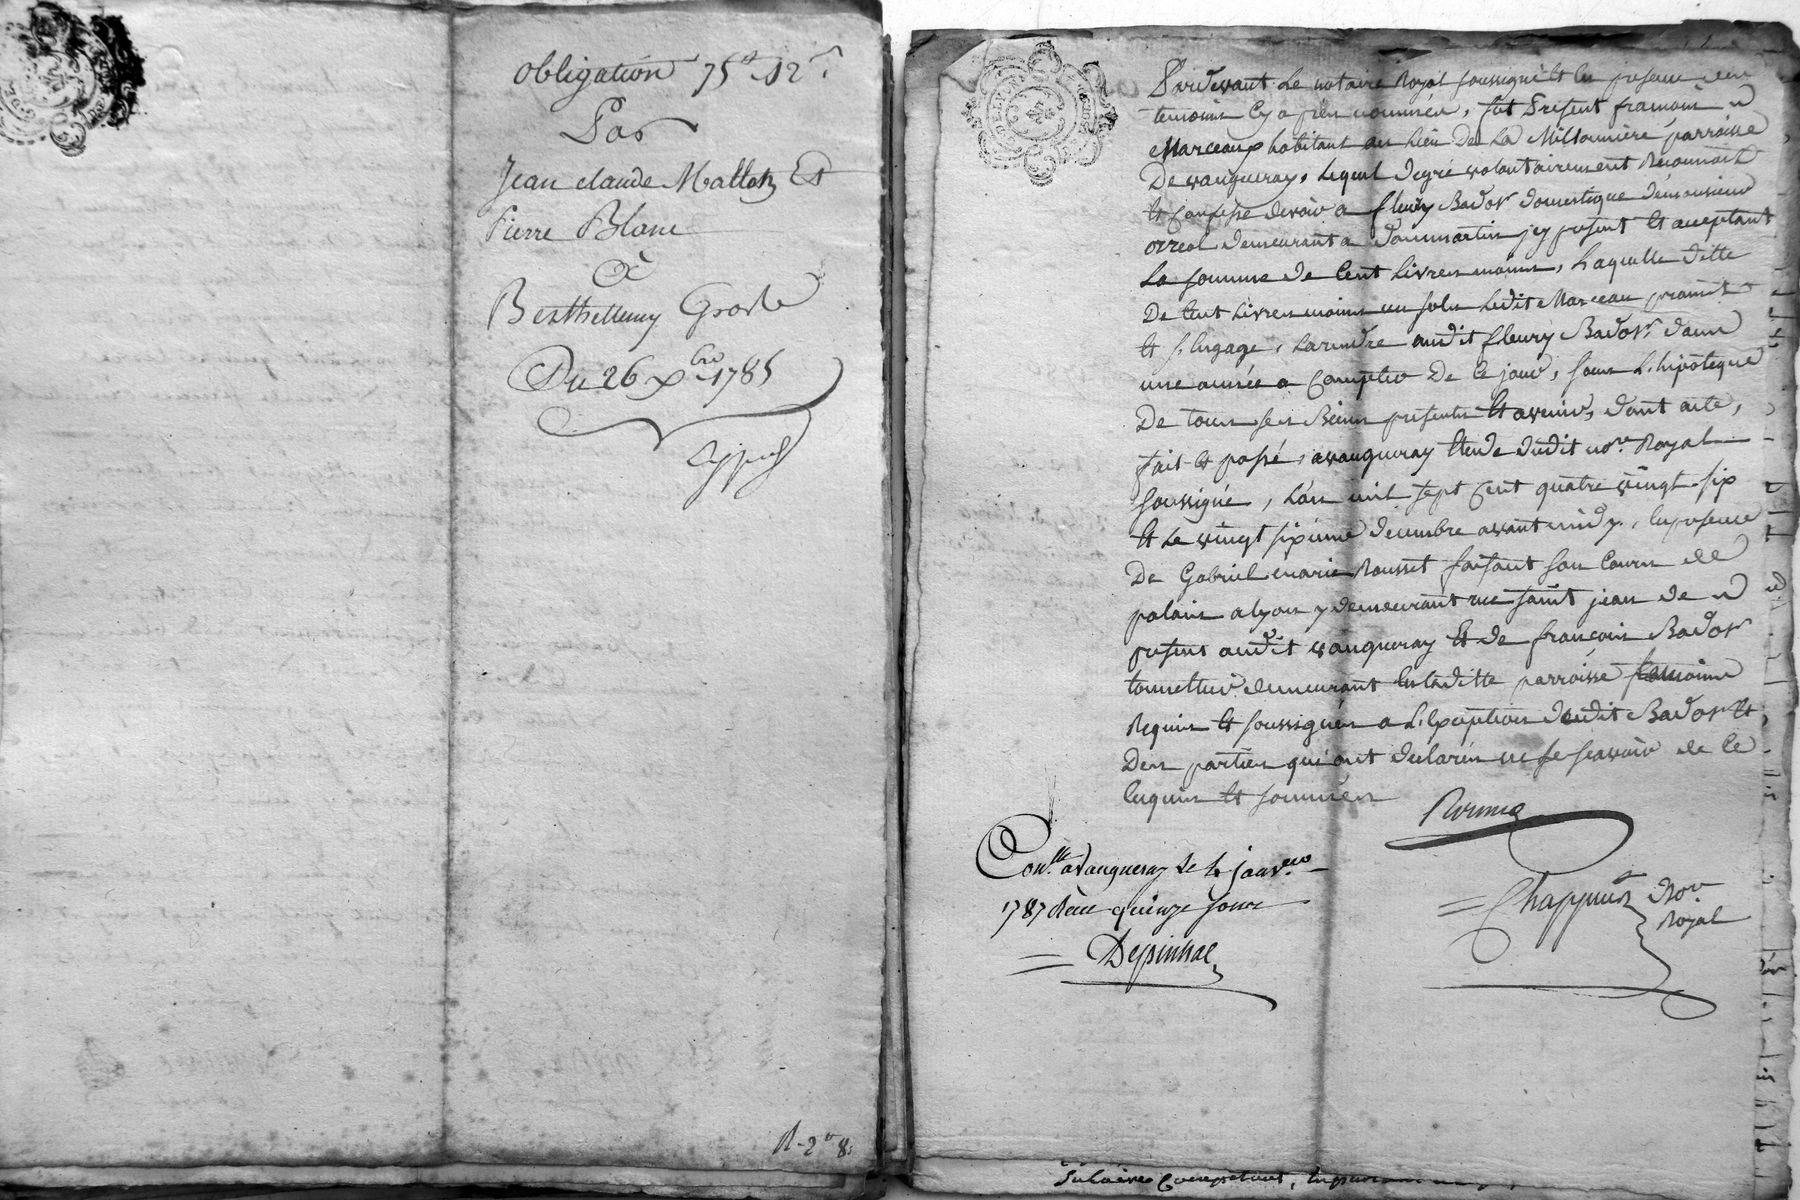 obligation 75tt 12s
Par
Jean claude Mallet Et
Pierre Blanc
à
Berthellemy
Du 26 xbre 1785
R - 2tt 8s
Pardevant Le notaire Royal soussigné Et En presence des
temoins Cy apres nommés, fut Present francois
Marceaux habitant au Lieu De La Millonnière parroisse
De vaugneray, Lequel Degré volontairement Reconnoit
Et Confesse devoir a fleury Bador domestique demonsieur
demeurant a dommartin jcy present Et acceptant
La somme de Cent Livres moins, Laquelle ditte
De Cent Livres moins un sols Ledit Marceau promet
Et s'Engage, La rendre audit fleury Bador dans
une année a Compter De Ce jour, sous L'hipoteque
De tous ses Biens presents Et avenir, dont acte,
fait Et passé, avaugneray Etude dudit nore Royal
soussigné, L'an mil sept Cent quatre vingt six
Et Le vingt sixieme decembre avant midy, En presence
De Gabriel marie Rousset faisant son Cours de
palais a Lyon y demeurant rue saint jean de
present audit vaugneray Et de francois Bador
tonnellier demeurant En Laditte parroisse temoins
Requis Et soussignés a L'Exception dudit Bador Et
Des parties qui ont declarés ne le scavoir de Ce
Enquis Et sommés
Conllé avaugneray Le 4 janver
1787 Recu quinze sous
Depinhac
Chappuis Nore
Royal